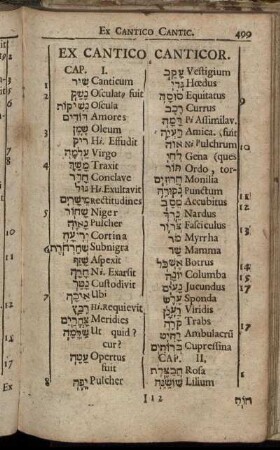 EX CANTICO CANTIC. 499
EX CANTICO CANTICOR.
CAP. I.
1 שִׁיר Canticum
2 נָשַׁק Osculatus fuit
נְשִׁיקוֹת Oscula
דּוֹדִים Amores
3 שֶׁמֶן Oleum
רִיק Hi. Effudit
עַלְמָה Virgo
4 מָשַׁךְ Traxit
חֶדֶר Conclave
גּיל Hi. Exultavit
מֵישָׁרִים Rectitudines
5 שָׁחוֹר Niger
נָאוֶה Pulcher
יְרִיעָה Cortina
6 שְׁחַרְחֹרֶת Subnigra
שָׁזַף Aspexit
חָרָה Ni. Exarsit
נָטַר Custodivit
7 אֵיכָה Ubi
רָבַץ Hi. Requievit
צָהֳרַיִם Meridies
שַׁלָּמָה Ut quid? cur?
עָטָה Opertus fuit
8 יָפָה Pulcher
עָקֵב Vestigium
גְּדִי Hœdus
9 סוּסָה Equitatus
רֶכֶב Currus
דָּמָה Pi Assimilav.
רַעְיָה Amica. (fuit
10 נָאוָה Ni Pulchrum
לְחִי Gena (ques
תּוֹר Ordo, tor-
חֲרוּזִים Monilia
11 נְקֻדָּה Punctum
12 מֵסַב Accubitus
נֵרְדְּ Nardus
13 צְרוֹר Fasciculus
מֹר Myrrha
שַׁד Mamma
14 אֶשְׁכֹּל Botrus
15 יוֹנָה Columba
16 נָעִים Jucundus
עֶרֶשׂ Sponda
רַעֲנָן Viridis
17 קוֹרָה Trabs
רָחִיט Ambulacrũ
בְּרוֹתִים Cupressina
CAP. II.
1 חֲבַצֶּלֶת Rosa
שׁוֹשַׁנָּה Lilium
I i 2 חוֹחַ